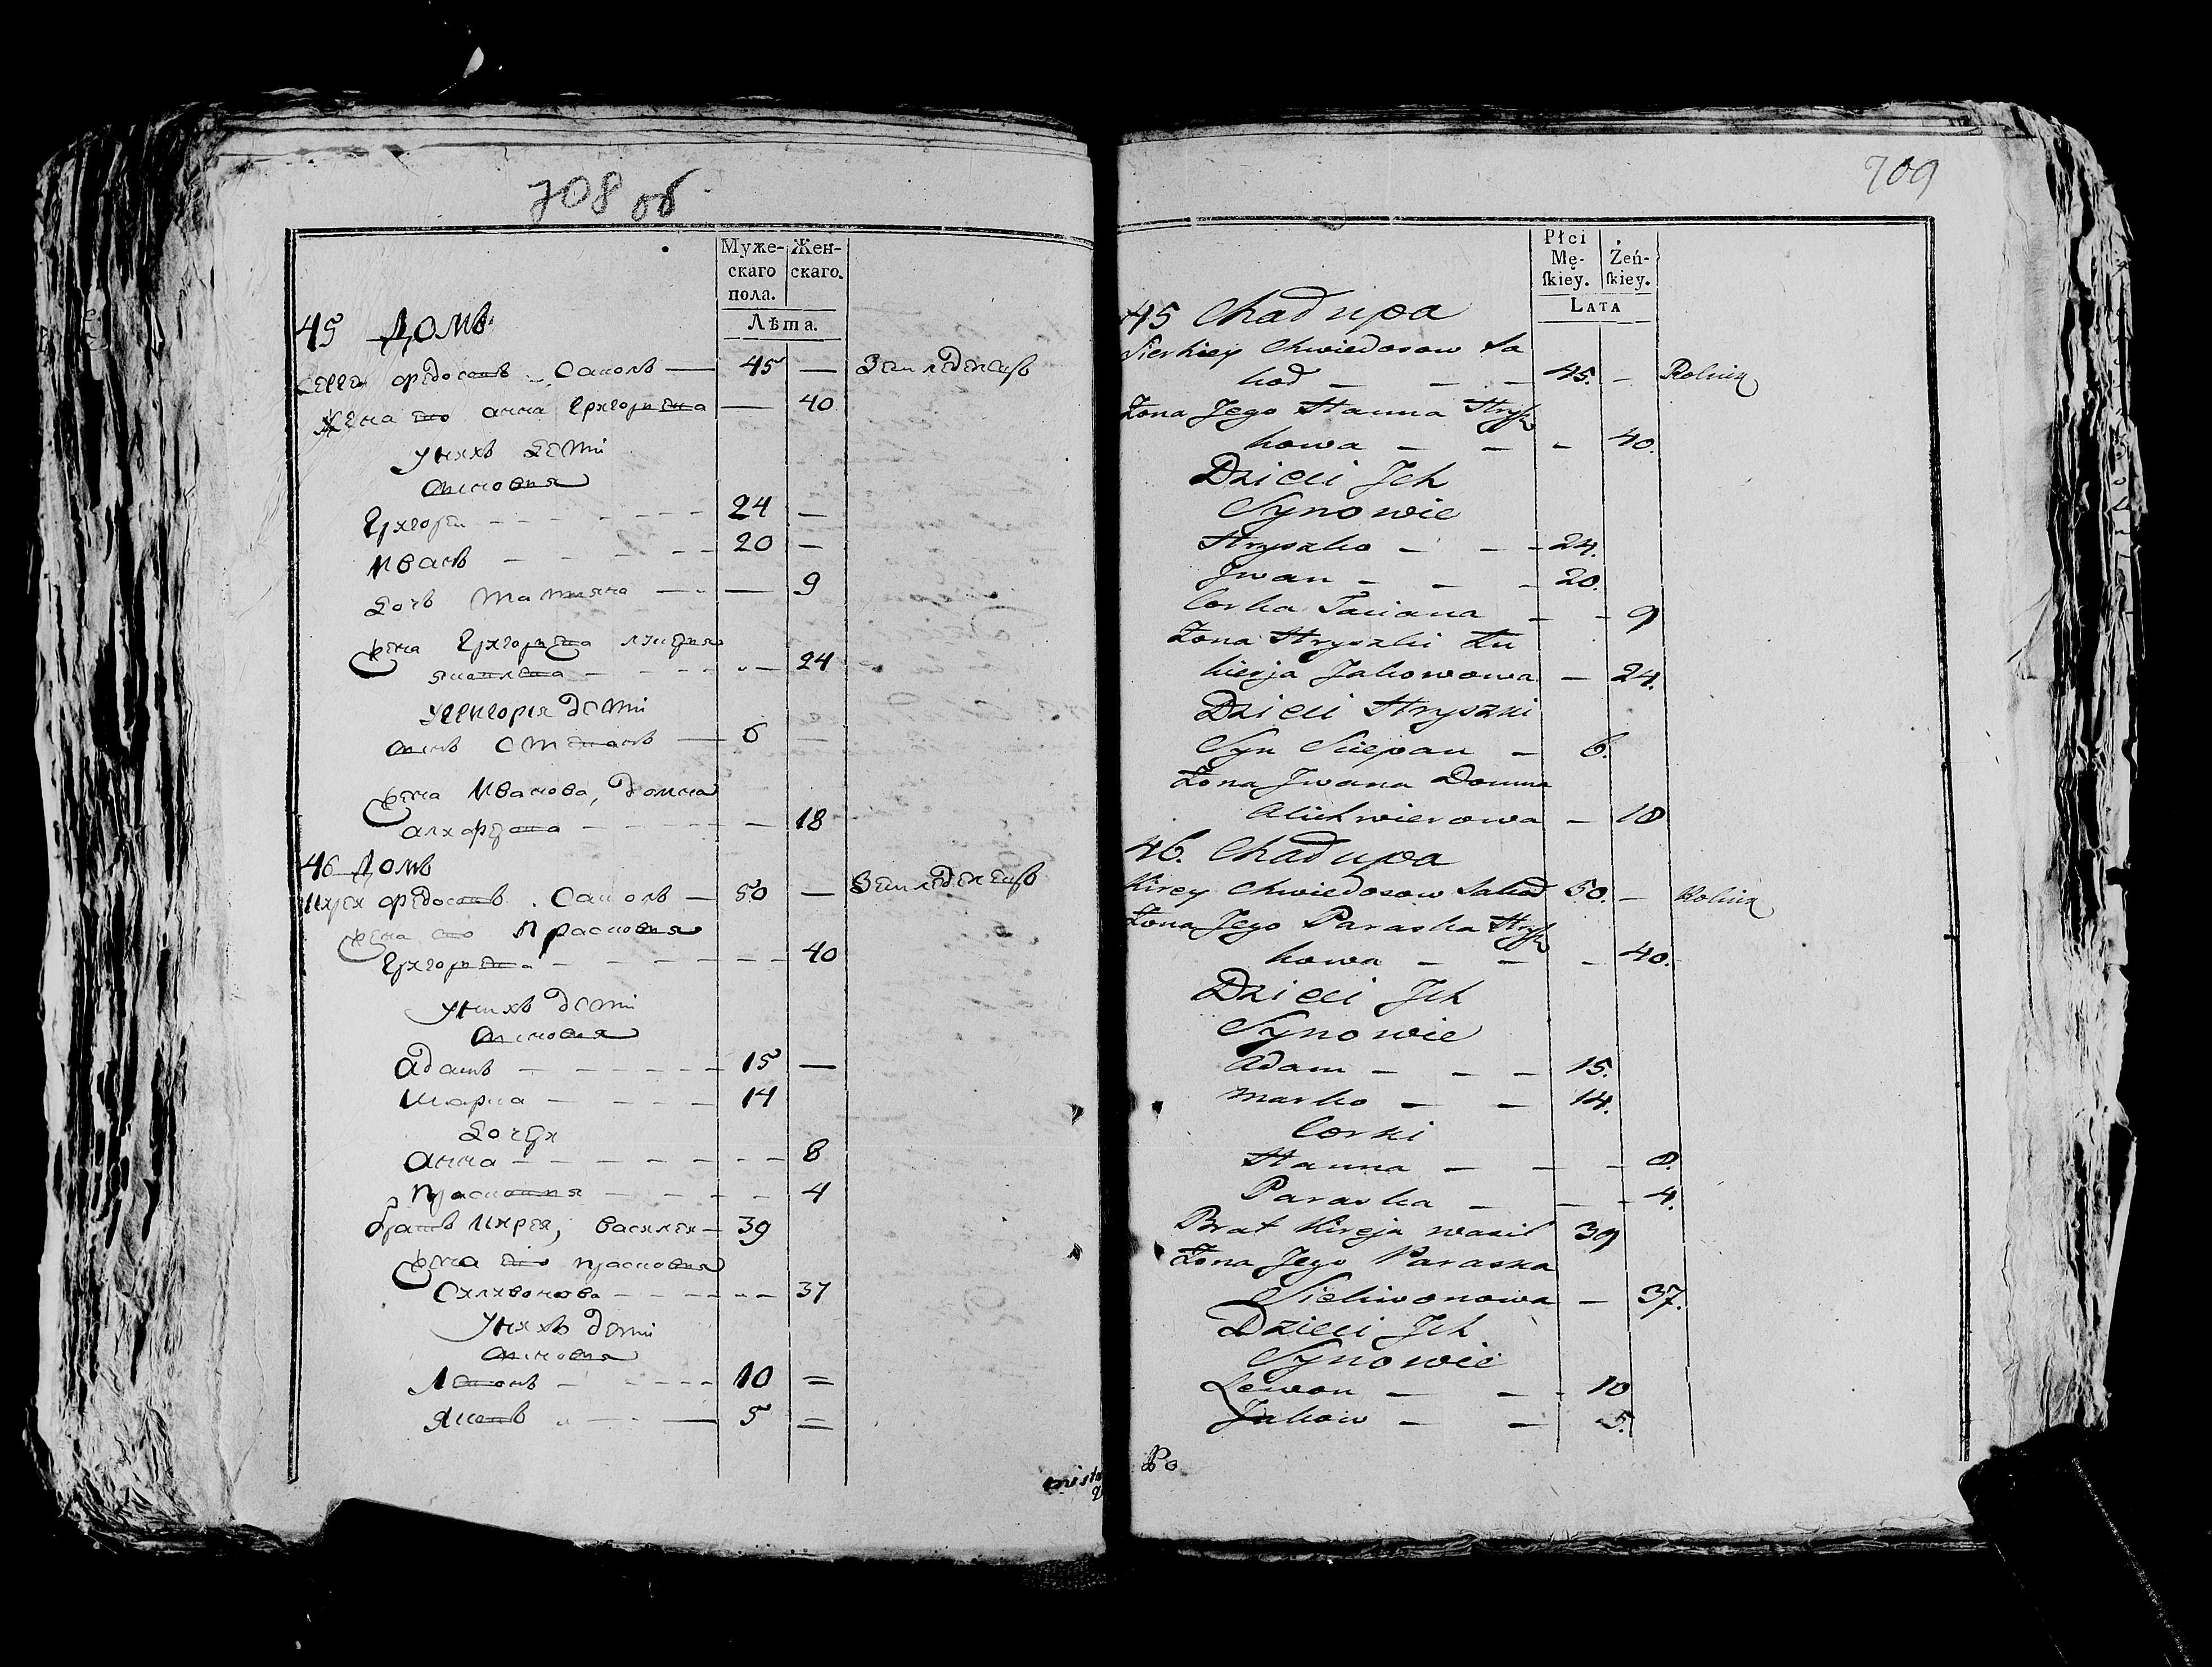 708 об
Муже-
скаго
пола.
Жен-
скаго.
Лѣта.
45 Домъ
Сергеи Федосовъ Саколъ — 45 — Земледелецъ
Жена его Анна Григорьева — 40
У нихъ Дети
Сыновья
Григорей - - - 24 —
Иванъ - - - 20 —
Дочь Татьяна — — 9
Жена Григорьева
Яковлева - - - 24
У Григорья дети
Сынъ Степанъ — 6 —
Жена Иванова, Домна
Алхферова - - - 18
46 Домъ
Кирей Федосовъ Саколъ — 50 — Земледелецъ
Жена его Прасковья
Григорьева - - - 40
У нихъ дети
Сыновья
Адамъ - - - 15 —
Марка - - - 14
Дочери
Анна - - - 8
Прасковья - - - 4
Братъ Кирея, Василей — 39
Жена его Прасковья
Селивонова - - - 37
У нихъ дети
Сыновья
Левонъ - - - 10 =
Яковъ - - - 5 =
709
Płci
Mę-
ſkiey.
Żeń-
ſkiey.
LATA
45 Chadupa
Sierhiey Chwiedosow Sa
koł — — — 45. — Rolnik
Żona Jego Hanna Hrysz
kowa — — — 40.
Dzieci Jch
Synowie
Hryszko — — — 24.
Jwan — — — 20.
Corka Taciana — — 9
Żona Hryszki Łu
kierja Jakowowa — 24.
Dzieci Hryszki
Syn Sciepan — 6.
Żona Jwana Domna
Alichwierowa — 18
46. Chadupa
Kirey Chwiedosow Sakoł 50. — Rolnik
Żona Jego Paraska Hrysz
kowa — — — 40.
Dzieci Jch
Synowie
Adam — — — 15.
Marko — — 14.
Corki
Hanna — — — 8.
Paraska — — — 4.
Brat Kireja Wasil 39
Żona Jego Paraska
Sieliwonowa — 37.
Dzieci Jch
Synowie
Lewon — — — 10
Jakow — — 5.